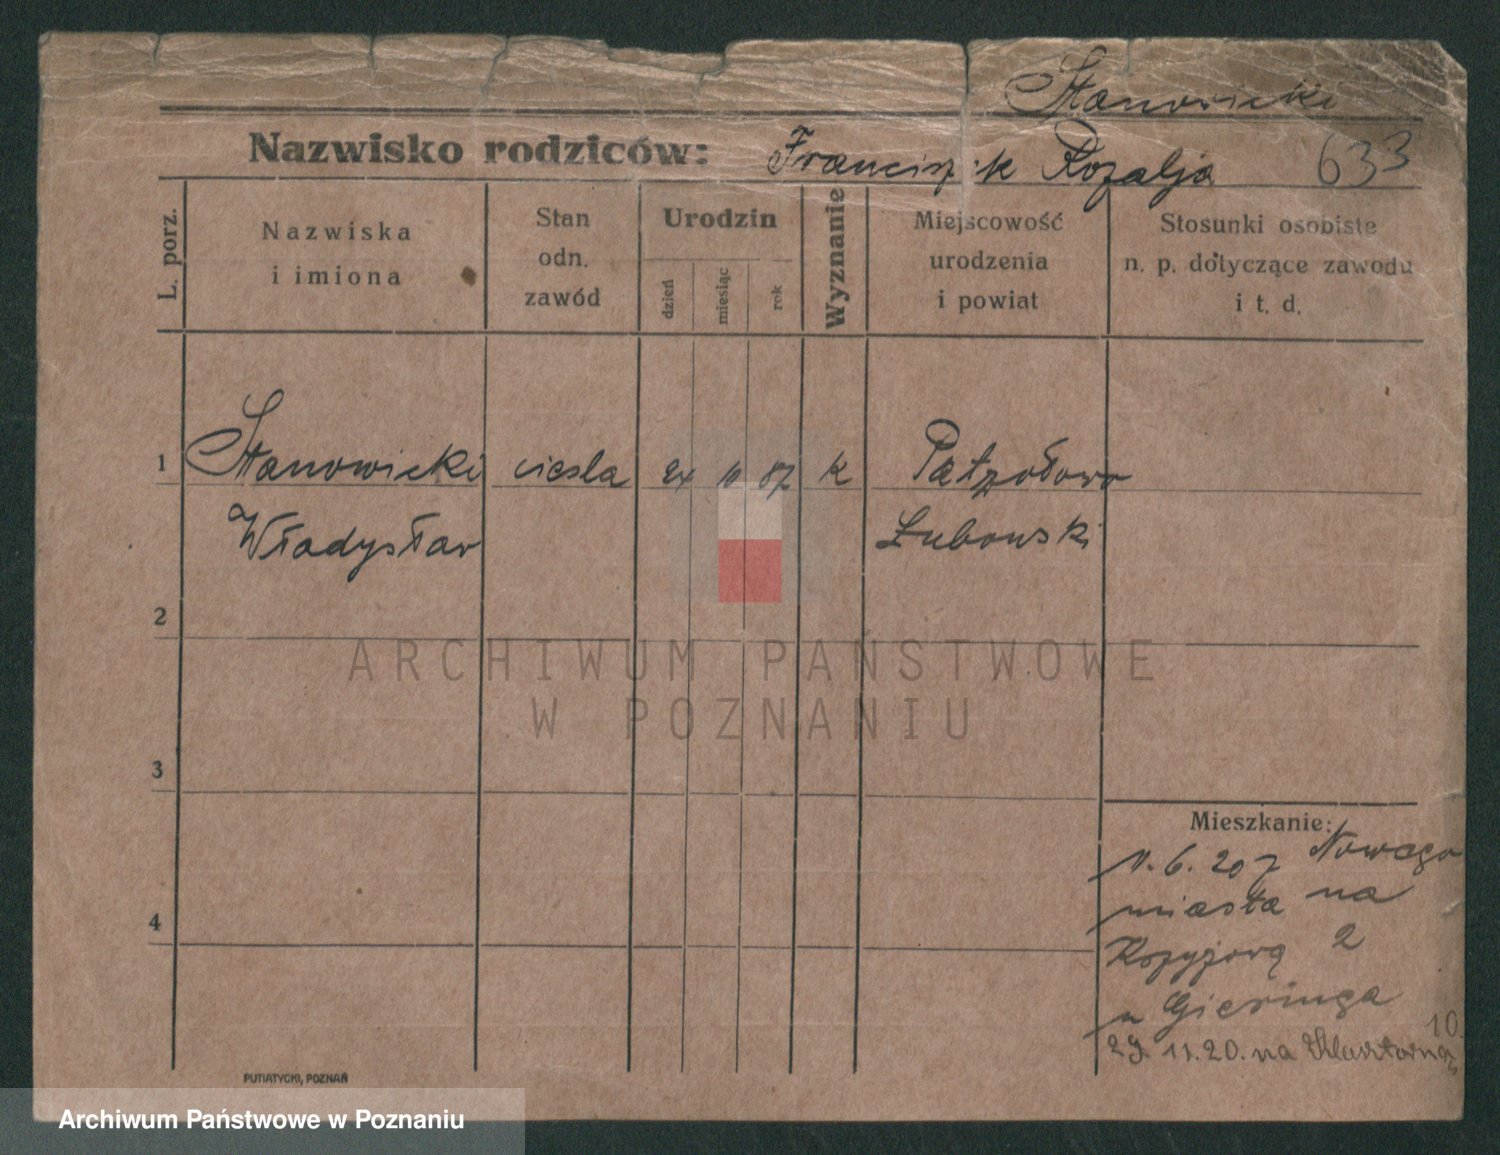 Stanowicki
Nazwisko rodziców: Franciszek Rozalja 633
L. porz.
Nazwiska
i imiona
Stan
odn.
zawód
Urodzin
dzień
miesiąc
rok
Wyznanie
Miejscowość
urodzenia
i powiat
Stosunki osobiste
n. p. dotyczące zawodu
i t. d.
1 Stanowicki ciesla 24 10 87 k
Władysław Lubowski
2
3
4
Mieszkanie:
11. 6. 20 z Nowego
miasta na
2
u Gieringa
29 11.20. na
10.
PUTIATYCKI, POZNAŃ
ARCHIWUM PAŃSTWOWE
W POZNANIU
Archiwum Państwowe w Poznaniu